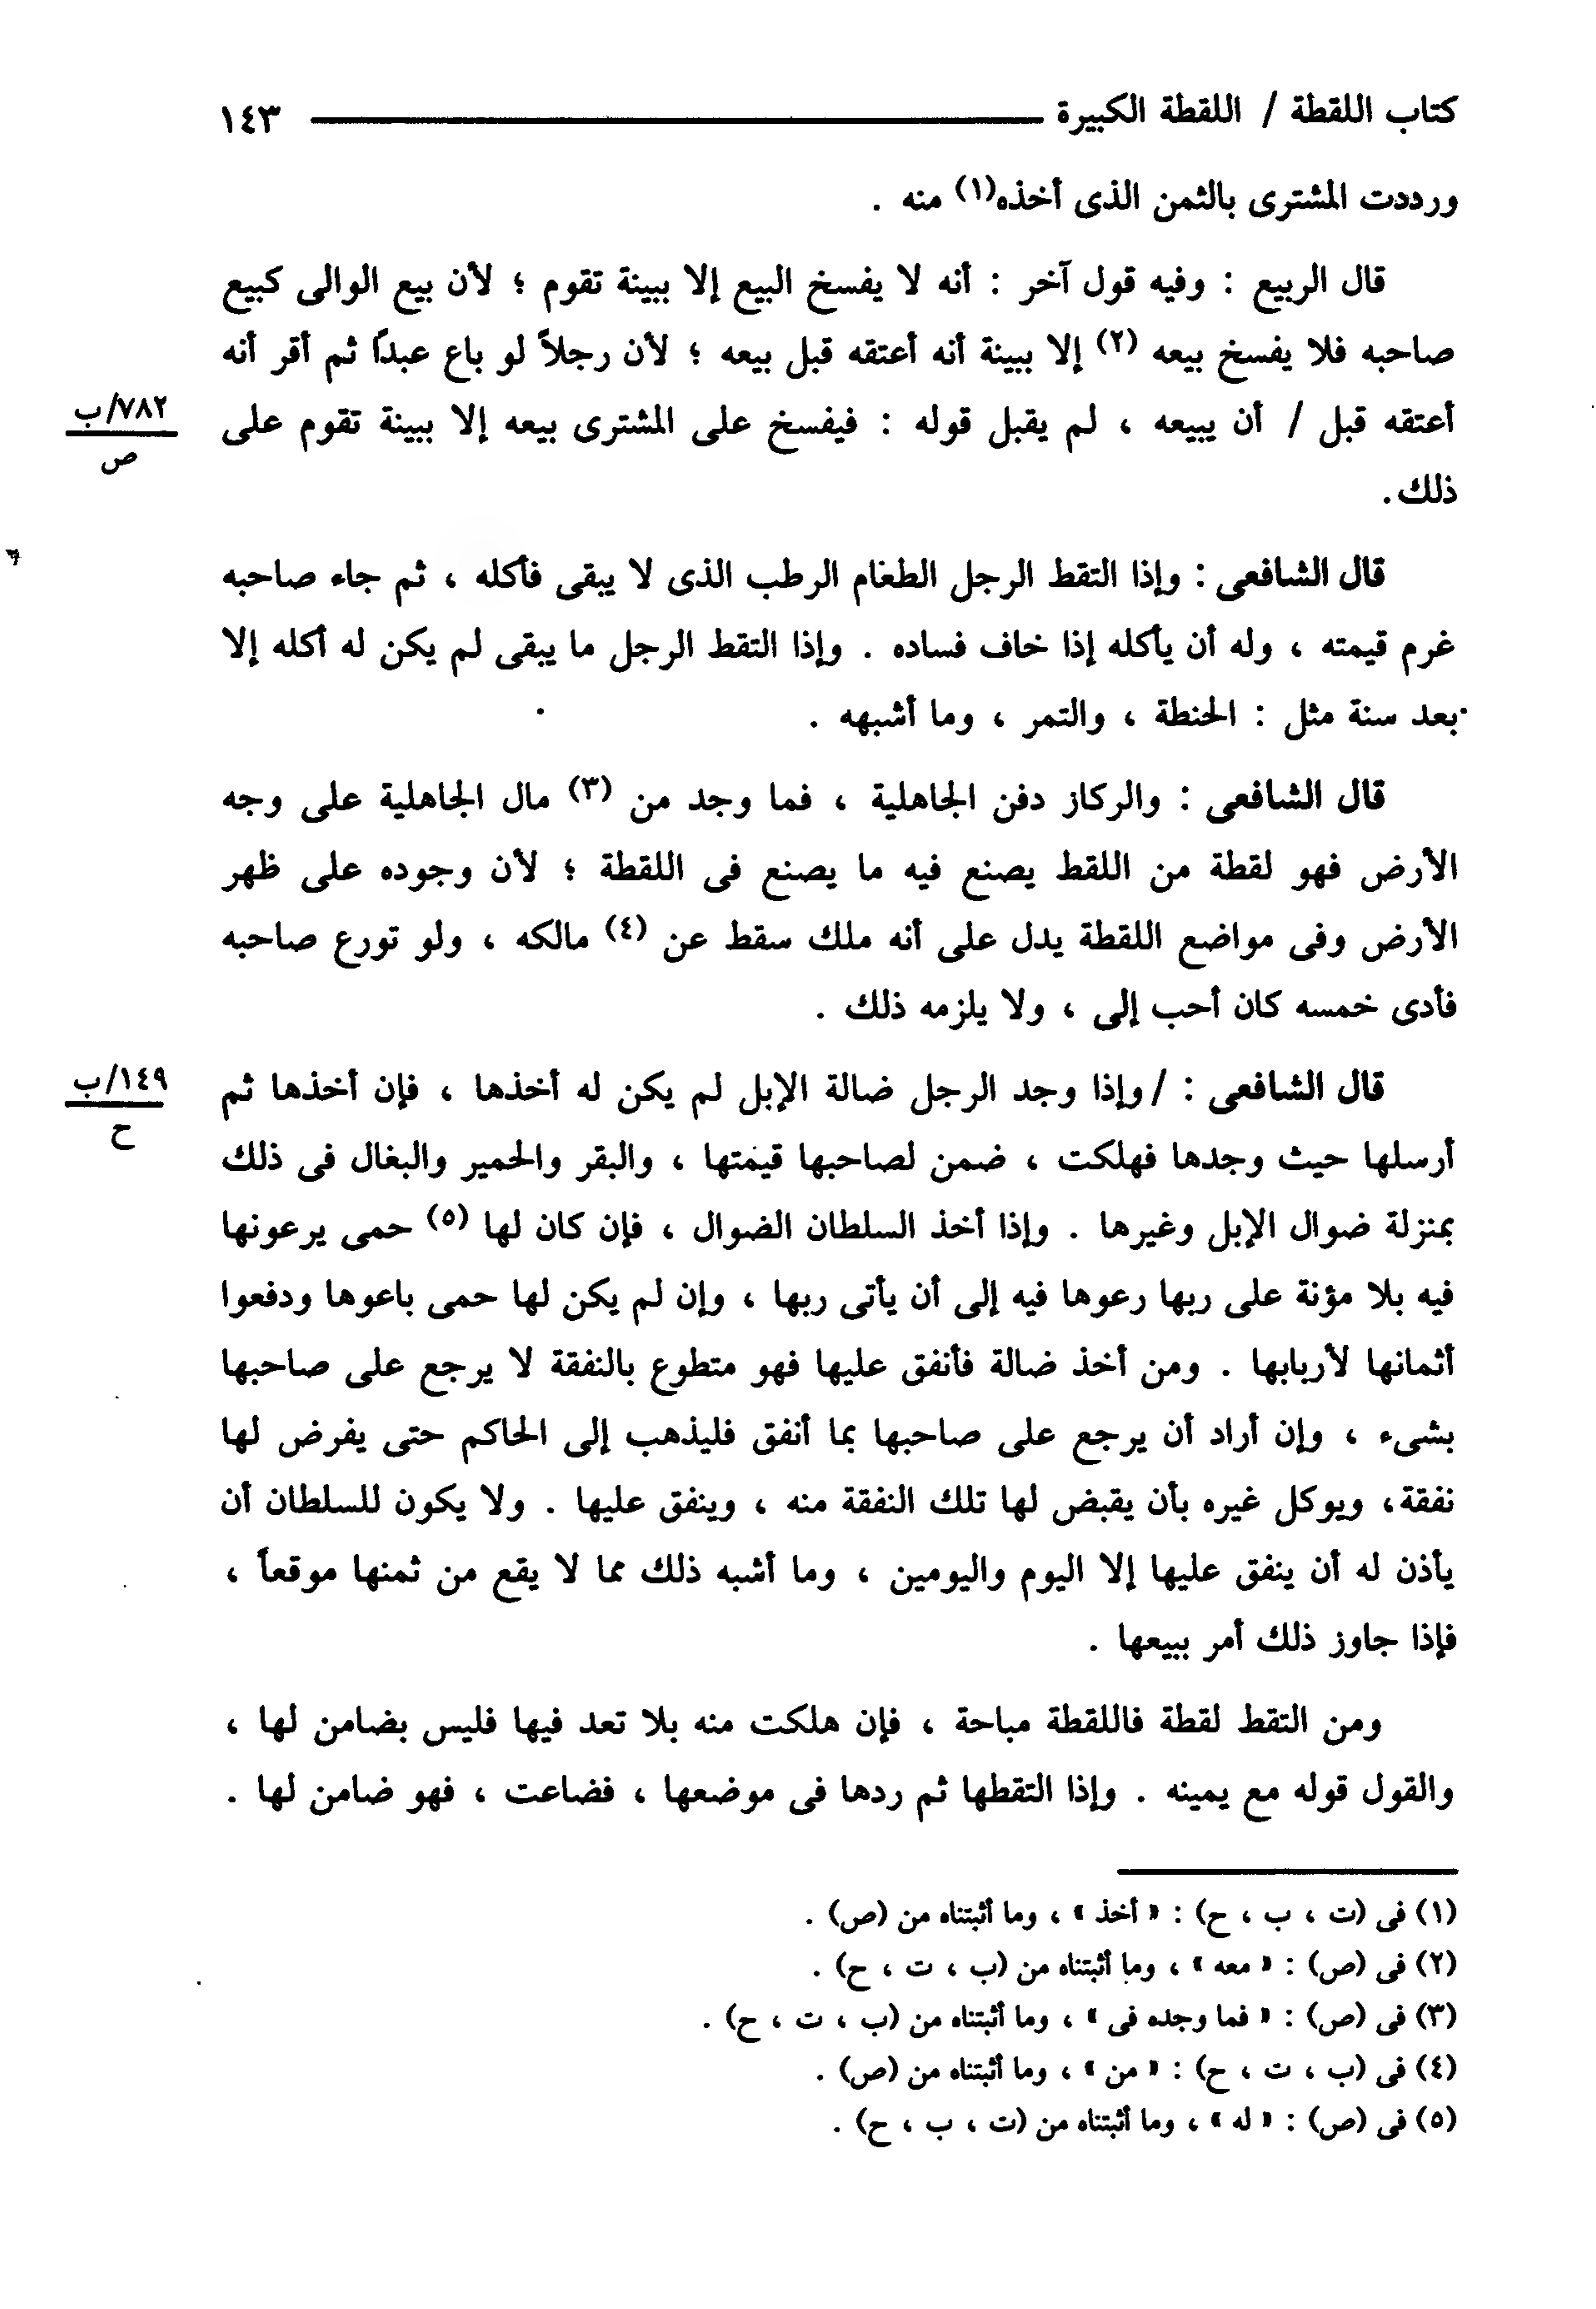 كتاب اللقطة / اللقطة الكبيرة ١٤٣
ورددت المشترى بالثمن الذى أخذه(١) منه .
قال الربيع : وفيه قول آخر : أنه لا يفسخ البيع إلا ببينة تقوم ؛ لأن بيع الوالى كبيع
صاحبه فلا يفسخ بيعه (٢) إلا ببينة أنه أعتقه قبل بيعه ؛ لأن رجلاً لو باع عبداً ثم أقر أنه
أعتقه قبل / أن يبيعه ، لم يقبل قوله : فيفسخ على المشترى بيعه إلا ببينة تقوم على
٧٨٢/ب
ص
ذلك.
قال الشافعى : وإذا التقط الرجل الطعام الرطب الذى لا يبقى فأكله ، ثم جاء صاحبه
غرم قيمته ، وله أن يأكله إذا خاف فساده . وإذا التقط الرجل ما يبقى لم يكن له أكله إلا
بعد سنة مثل : الحنطة ، والتمر ، وما أشبهه .
قال الشافعى : والركاز دفن الجاهلية ، فما وجد من (٣) مال الجاهلية على وجه
الأرض فهو لقطة من اللقط يصنع فيه ما يصنع فى اللقطة ؛ لأن وجوده على ظهر
الأرض وفى مواضع اللقطة يدل على أنه ملك سقط عن (٤) مالكه ، ولو تورع صاحبه
فأدى خمسه كان أحب إلى ، ولا يلزمه ذلك .
قال الشافعى : /وإذا وجد الرجل ضالة الإبل لم يكن له أخذها ، فإن أخذها ثم
١٤٩/ب
ح
أرسلها حيث وجدها فهلكت ، ضمن لصاحبها قيمتها ، والبقر والحمير والبغال فى ذلك
بمنزلة ضوال الإبل وغيرها . وإذا أخذ السلطان الضوال ، فإن كان لها (٥) حمى يرعونها
فيه بلا مؤنة على ربها رعوها فيه إلى أن يأتى ربها ، وإن لم يكن لها حمى باعوها ودفعوا
أثمانها لأربابها . ومن أخذ ضالة فأنفق عليها فهو متطوع بالنفقة لا يرجع على صاحبها
بشىء ، وإن أراد أن يرجع على صاحبها بما أنفق فليذهب إلى الحاكم حتى يفرض لها
نفقة، ويوكل غيره بأن يقبض لها تلك النفقة منه ، وينفق عليها . ولا يكون للسلطان أن
يأذن له أن ينفق عليها إلا اليوم واليومين ، وما أشبه ذلك مما لا يقع من ثمنها موقعاً ،
فإذا جاوز ذلك أمر ببيعها .
ومن التقط لقطة فاللقطة مباحة ، فإن هلكت منه بلا تعد فيها فليس بضامن لها ،
والقول قوله مع يمينه . وإذا التقطها ثم ردها فى موضعها ، فضاعت ، فهو ضامن لها .
(١) فى (ت ، ب ، ح) : « أخذ » ، وما أثبتناه من (ص) .
(٢) فى (ص) : « معه » ، وما أثبتناه من (ب ، ت ، ح) .
(٣) فى (ص) : « فما وجده فى » ، وما أثبتناه من (ب ، ت ، ح) .
(٤) فى (ب ، ت ، ح) : « من » ، وما أثبتناه من (ص) .
(٥) فى (ص) : « له » ، وما أثبتناه من (ت ، ب ، ح) .